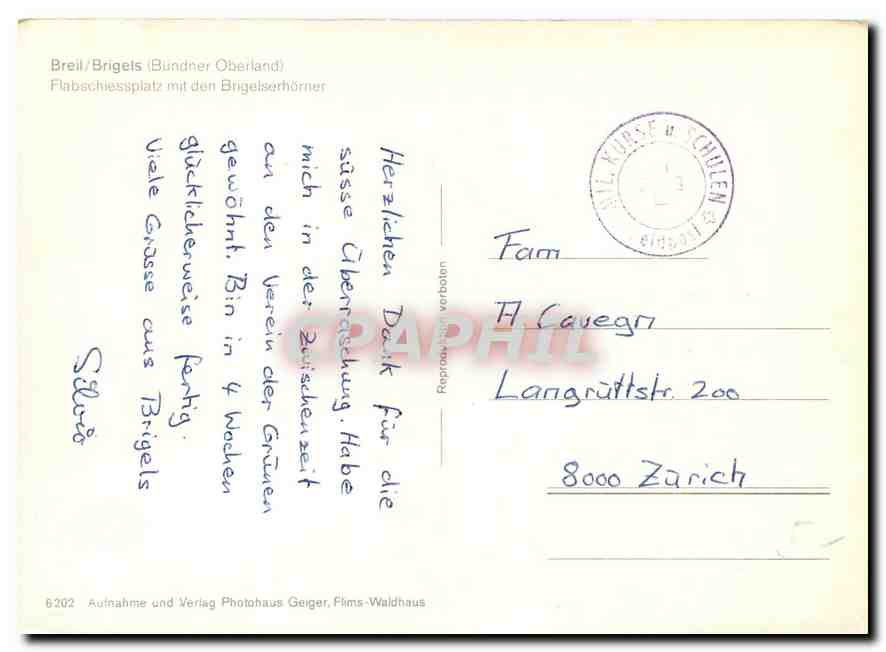 Breil/Brigels (Bündner Oberland)
Flabschiessplatz mit den Brigelserhörner
Herzlichen Dank für die
süsse Überraschung. Habe
mich in der Zwischenzeit
an den Verein der Grünen
gewöhnt. Bin in 4 Wochen
glücklicherweise fertig.
Viele Grüsse aus Brigels
Silvio
Reproduktion verboten
MIL. KURSE u. SCHULEN
Feldpost
Fam
A Cavegn
Langrüttstr. 200
8000 Zürich
CPAPHIL
6202 Aufnahme und Verlag Photohaus Geiger, Flims-Waldhaus